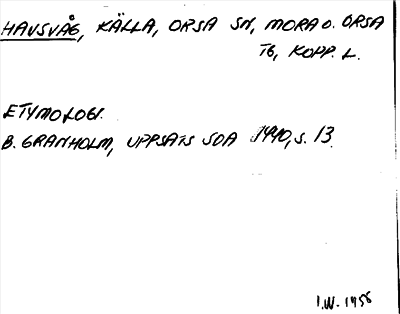 HAVSVÅG, KÄLLA, ORSA SN, MORA O. ORSA
TG, KOPP. L.
ETYMOLOGI.
B. GRANHOLM, UPPSATS SOA 1940, S. 13.
I.W. 1956